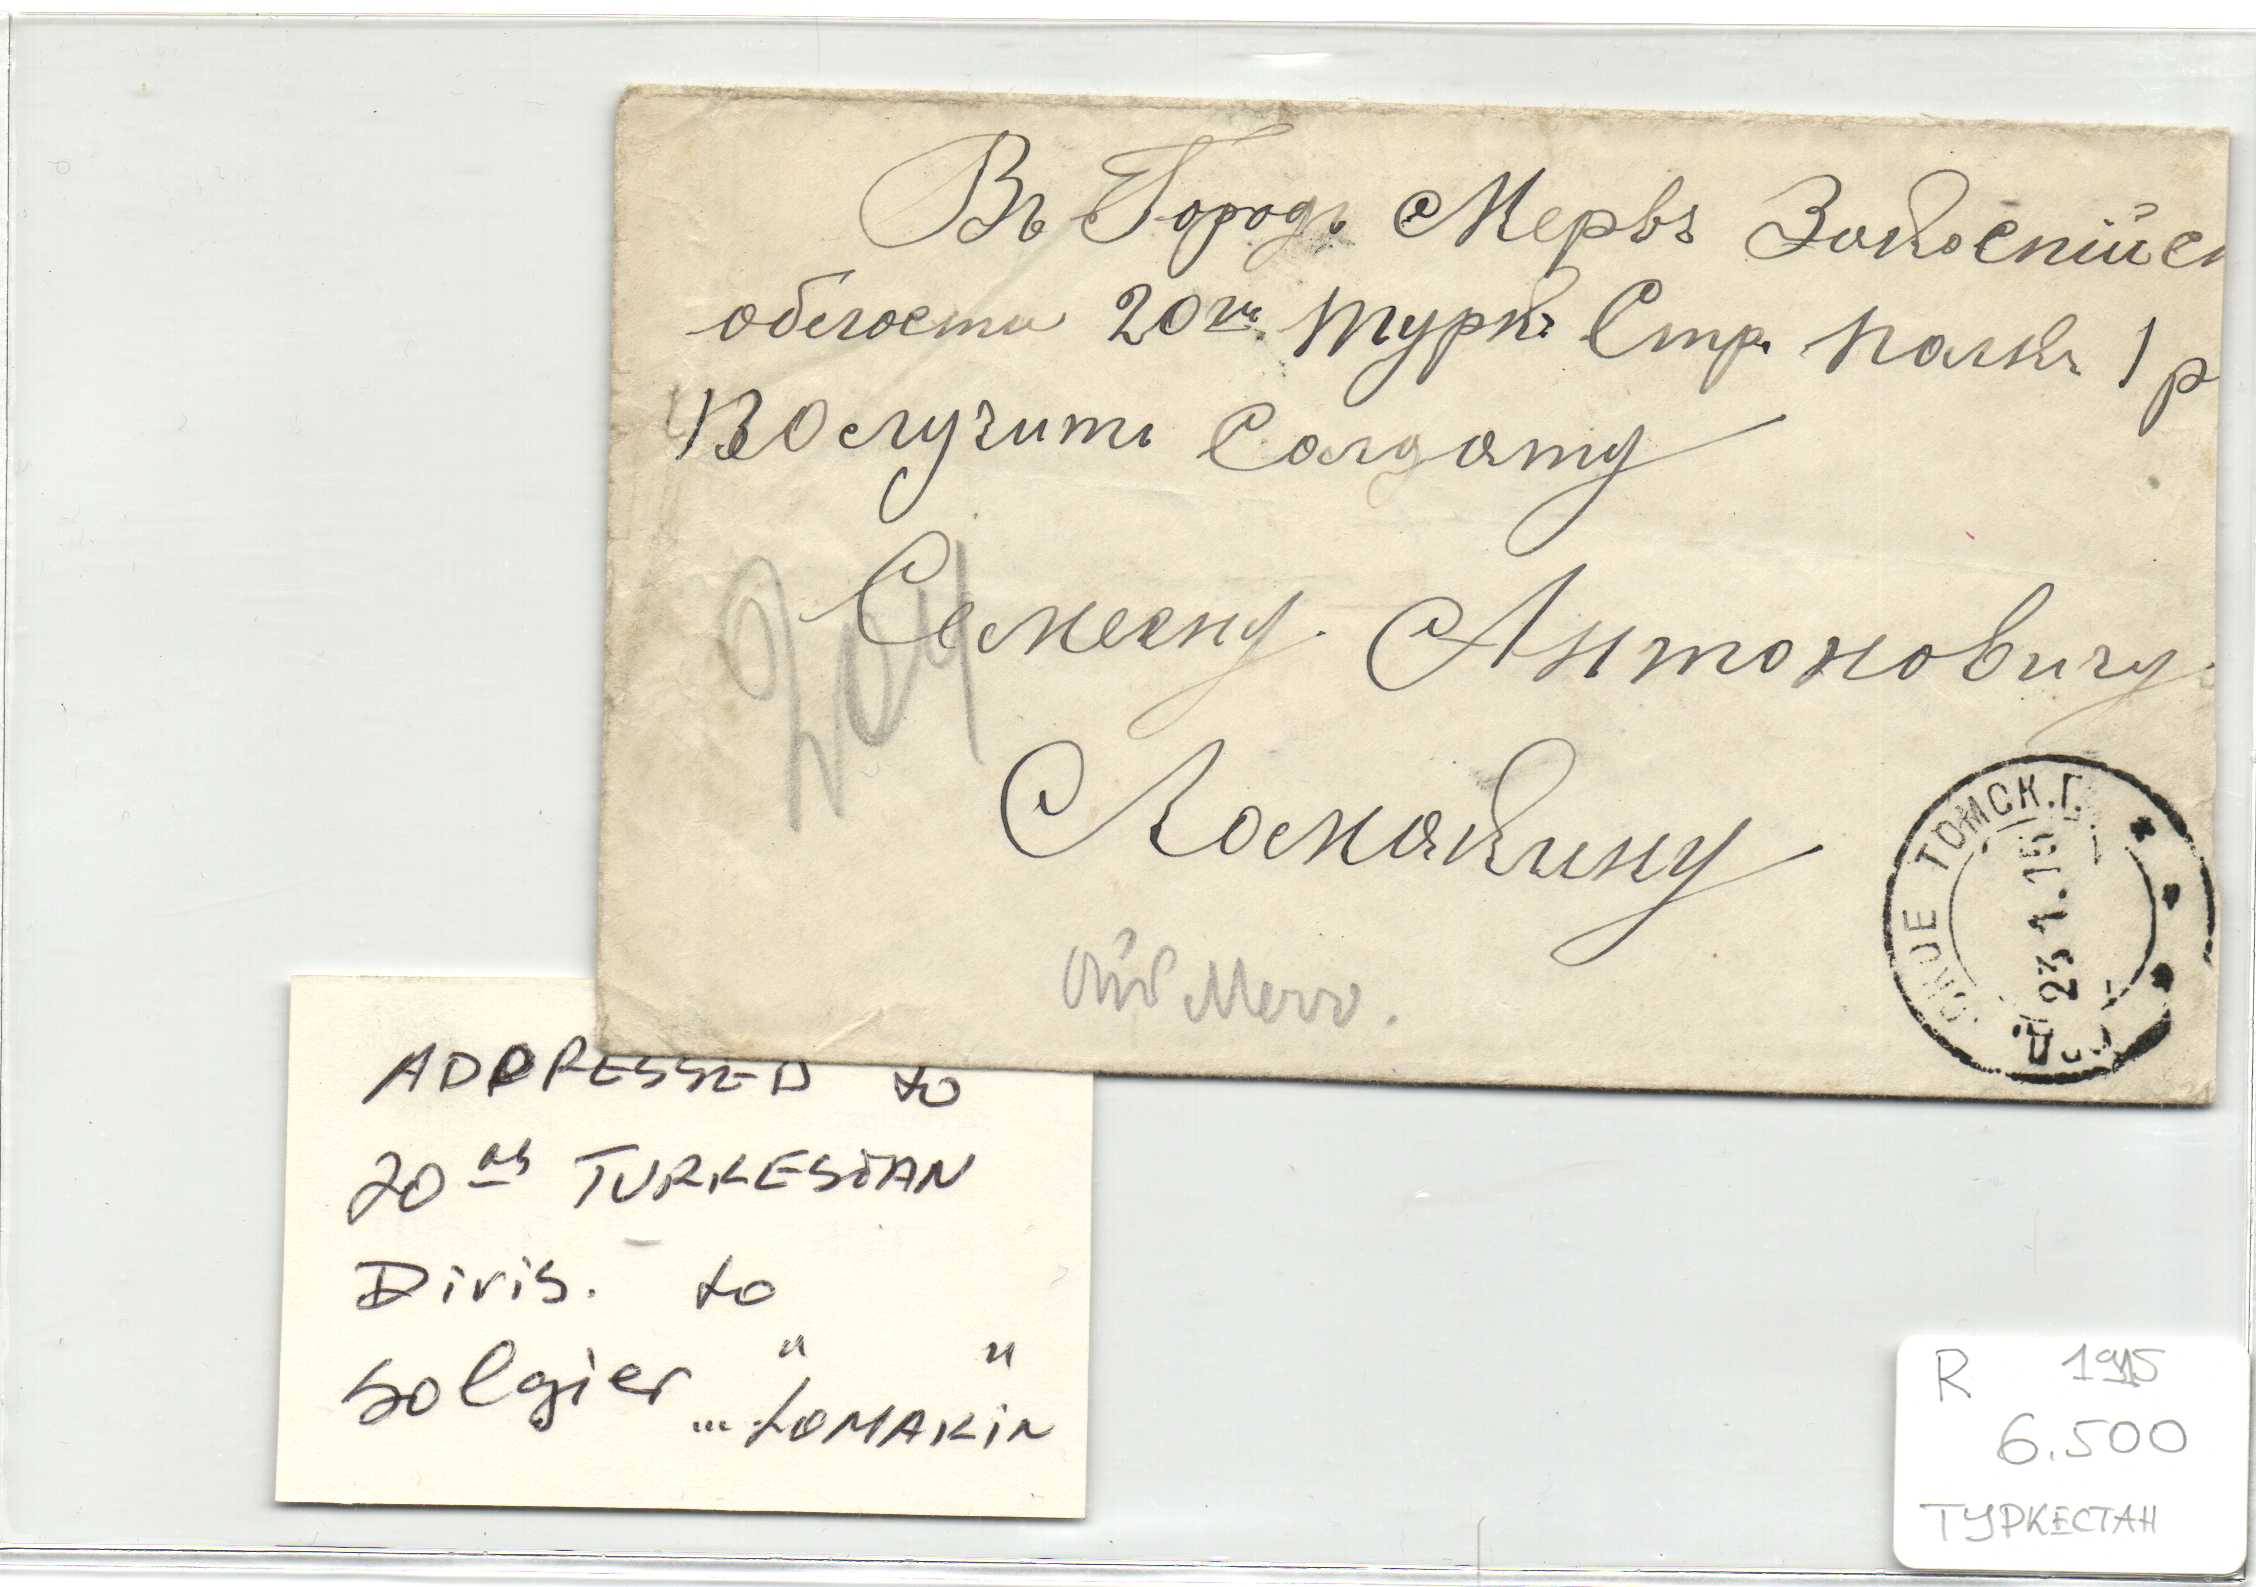 Въ Городъ Мервъ Закоспійск
области 20го Турк. Стр. Полкъ 1 р
Послучить Солдату
Семеену Антоновичу
Ломакину
204
Merv.
ТОМСК.Г.
23.1.15
ADDRESSED to
20 as TURKESTAN
Divis. to
solgier " "
... LOMAKIN
R 1915
6.500
ТУРКЕСТАН